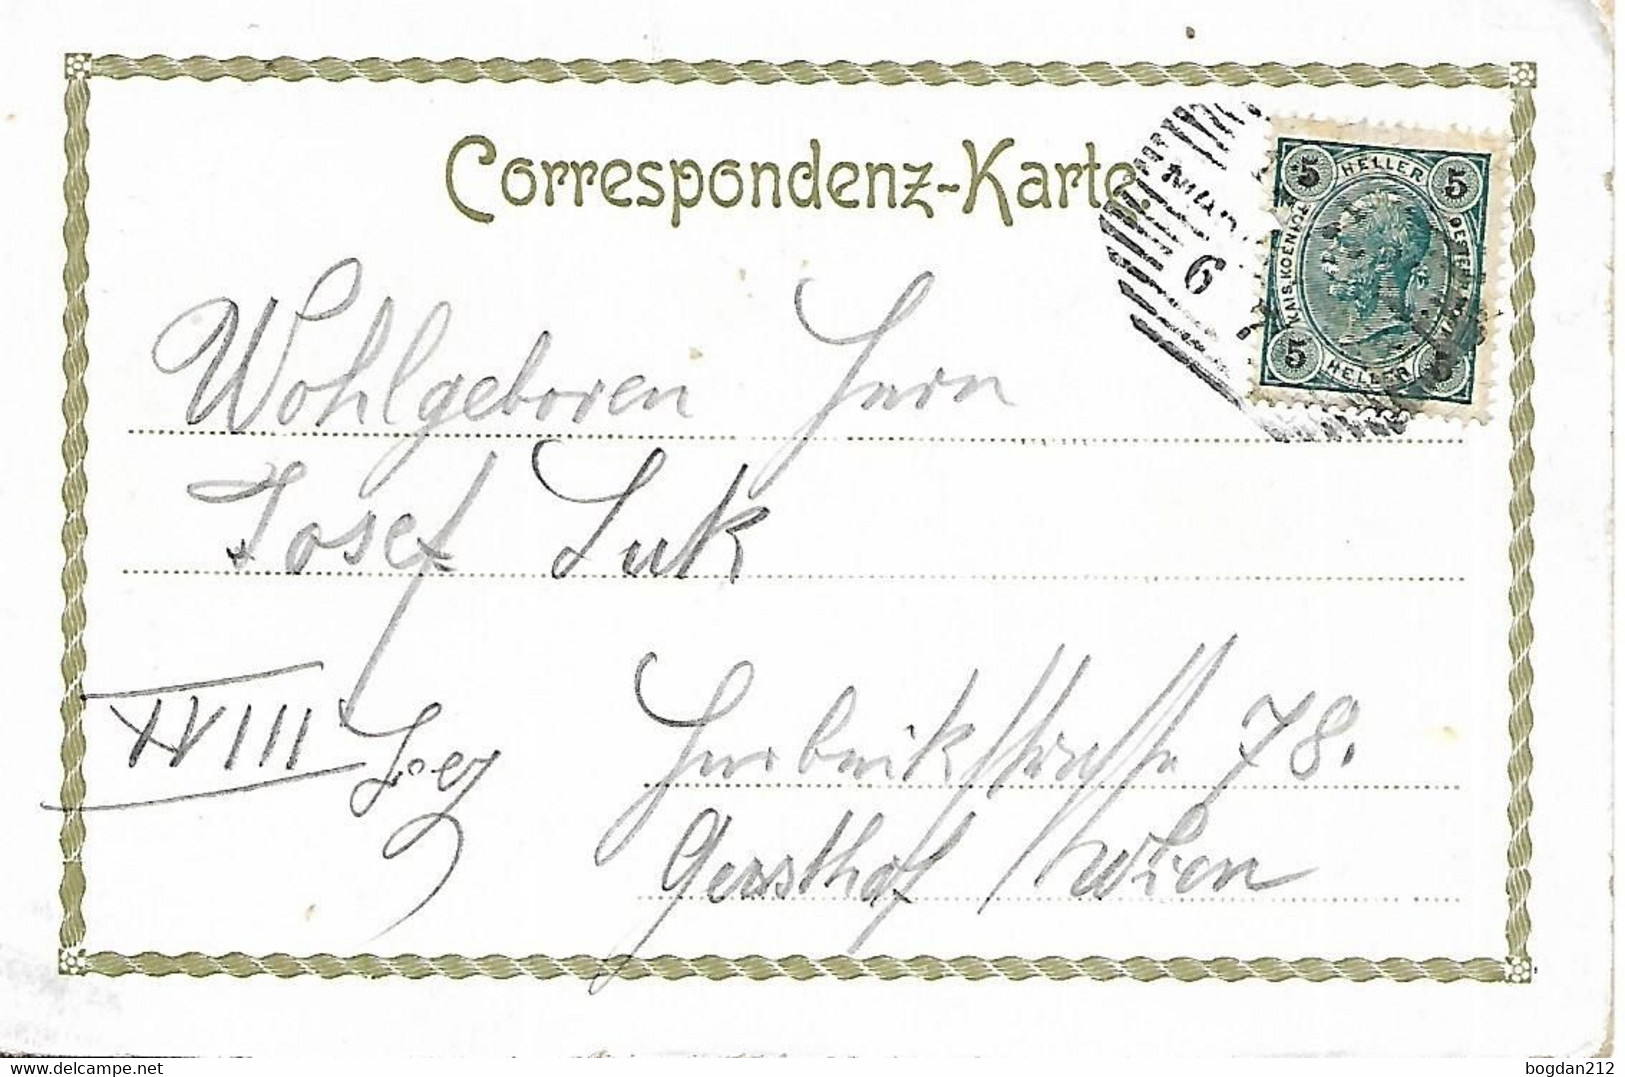 Correspondenz-Karte.
5 HELLER 5
KAIS. KOENIGL. OESTERR.
5 HELLER 5
6
Wohlgeboren Herrn
Josef Luk
XVIII
78.
Gersthof / Wien
delcampe.net
bogdan212